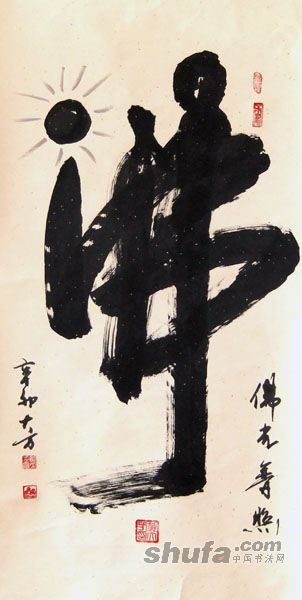 佛
佛光普照
辛卯大方
shufa.com
中国书法网